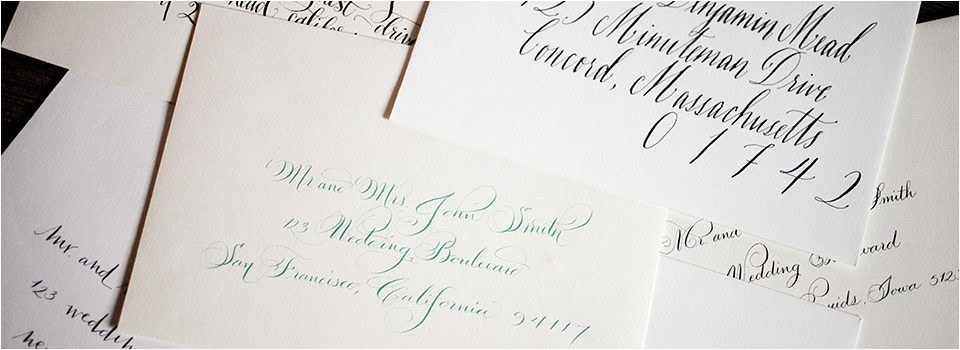 Benjamin Mead
Minuteman Drive
Concord, Massachusetts
01742
Mr and Mrs. John Smith
123 Wedding Boulevard
San Francisco, California 94117
mr. and
123
Smith
Mr. and
Wedding
Iowa